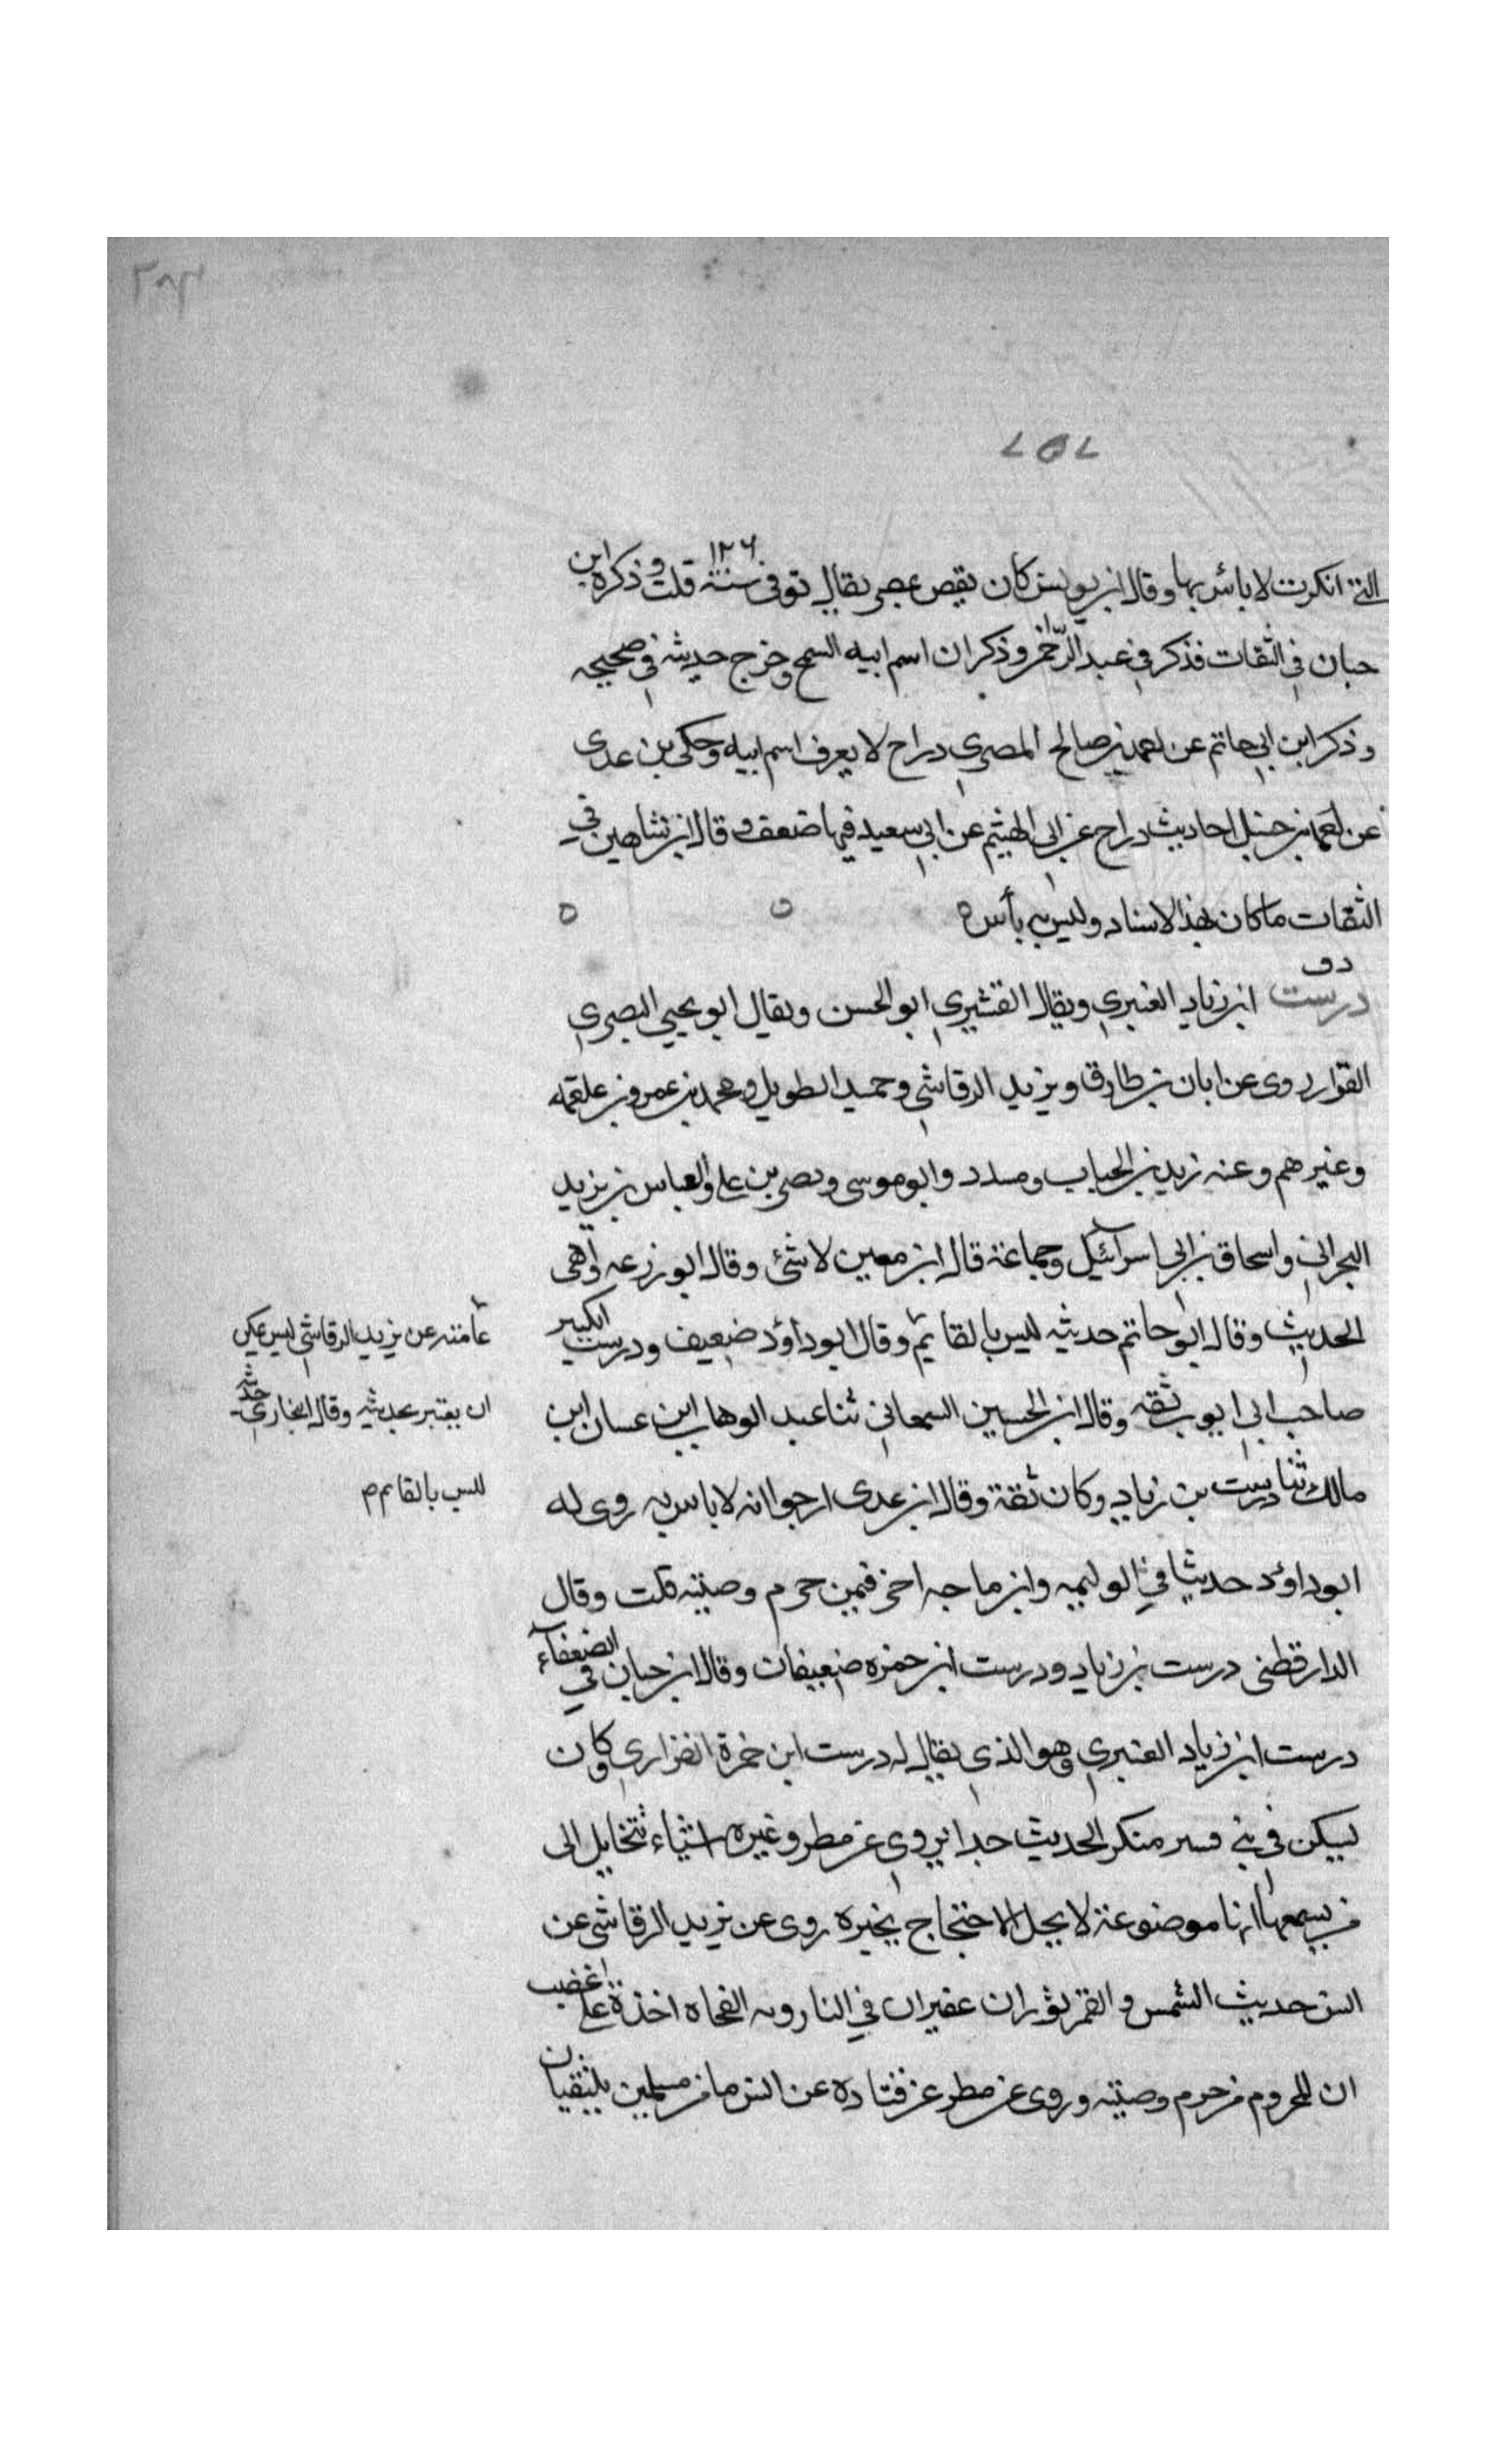 التى انكرت لا باس بها وقال ابن يونس كان يقص بمصر يقال توفى سنة ١٢٦ قلت وذكره ابن
حبان في الثقات فذكر في عبد الرحمن وذكر ان اسم ابيه السمح وخرج حديثه في صحيحه
وذكر ابن ابي حاتم عن احمد بن صالح المصري دراج لا يعرف اسم ابيه وحكى بن عدى
عن احمد بن حنبل احاديث دراج عن ابي الهيثم عن ابي سعيد فيها ضعف وقال ابن شاهين في
الثقات ما كان بهذا الاسناد وليس به بأس ه
دق
درست ابن زياد العنبري ويقال القشيري ابو الحسن ويقال ابو يحيي البصري
القزاز روى عن ابان بن طارق ويزيد الرقاشي وحميد الطويل ومحمد بن عمرو بن علقمه
وغيرهم وعنه زيد بن الحباب ومسدد وابو موسى ونصر بن علي والعباس بن يزيد
البحراني واسحاق بن ابي اسرائيل وجماعة قال ابن معين لا شئ وقال ابو زرعه واهى
الحديث وقال ابو حاتم حديثه ليس بالقائم وقال ابو داؤد ضعيف ودرست الكبير
صاحب ابي ايوب ثقه وقال ابن الحسين السمعاني ثنا عبد الوهاب ابن غسان ابن
مالك ثنا درست بن زياد وكان ثقة وقال ابن عدى ارجوا انه لا باس به روى له
ابو داؤد حديثا في الوليمه وابن ماجه اخر فيمن حرم وصيته قلت وقال
الدارقطنى درست بن زياد ودرست ابن حمزه ضعيفان وقال ابن حبان في الضعفاء
درست ابن زياد العنبري وهو الذى يقال له درست ابن حمزة القزاري وكان
يسكن في بني قسر منكر الحديث جدا يروى عن مطر وغيره اشياء تتخايل الى
من يسمعها انها موضوعة لا يحل الاحتجاج بخبره روى عن يزيد الرقاشى عن
انس حديث الشمس والقمر ثوران عقيران في النار وبه الفجاه اخذة على غضب
ان المحروم من حرم وصيته وروى عن مطر عن قتاده عن انس ما من مسلمين يلتقيان
عامته عن يزيد الرقاشي ليس يمكن
ان يعتبر بحديثه وقال البخاري حديثه
ليس بالقائم م